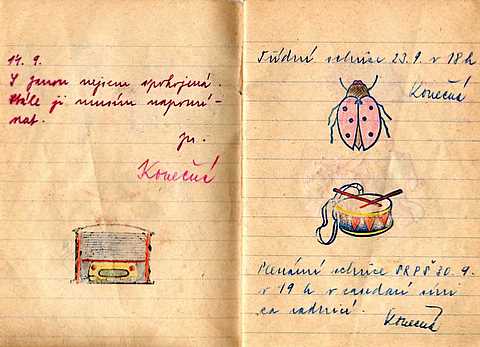 14. 9.
S Janou nejsem spokojená.
Stále ji musím napomí-
nat.
Konečná
Třídní schůze 23.9. v 18h
Konečná
Plenární schůze SRPŠ 30.9.
v 19 h v zasedací síni
na radnici.
Konečná